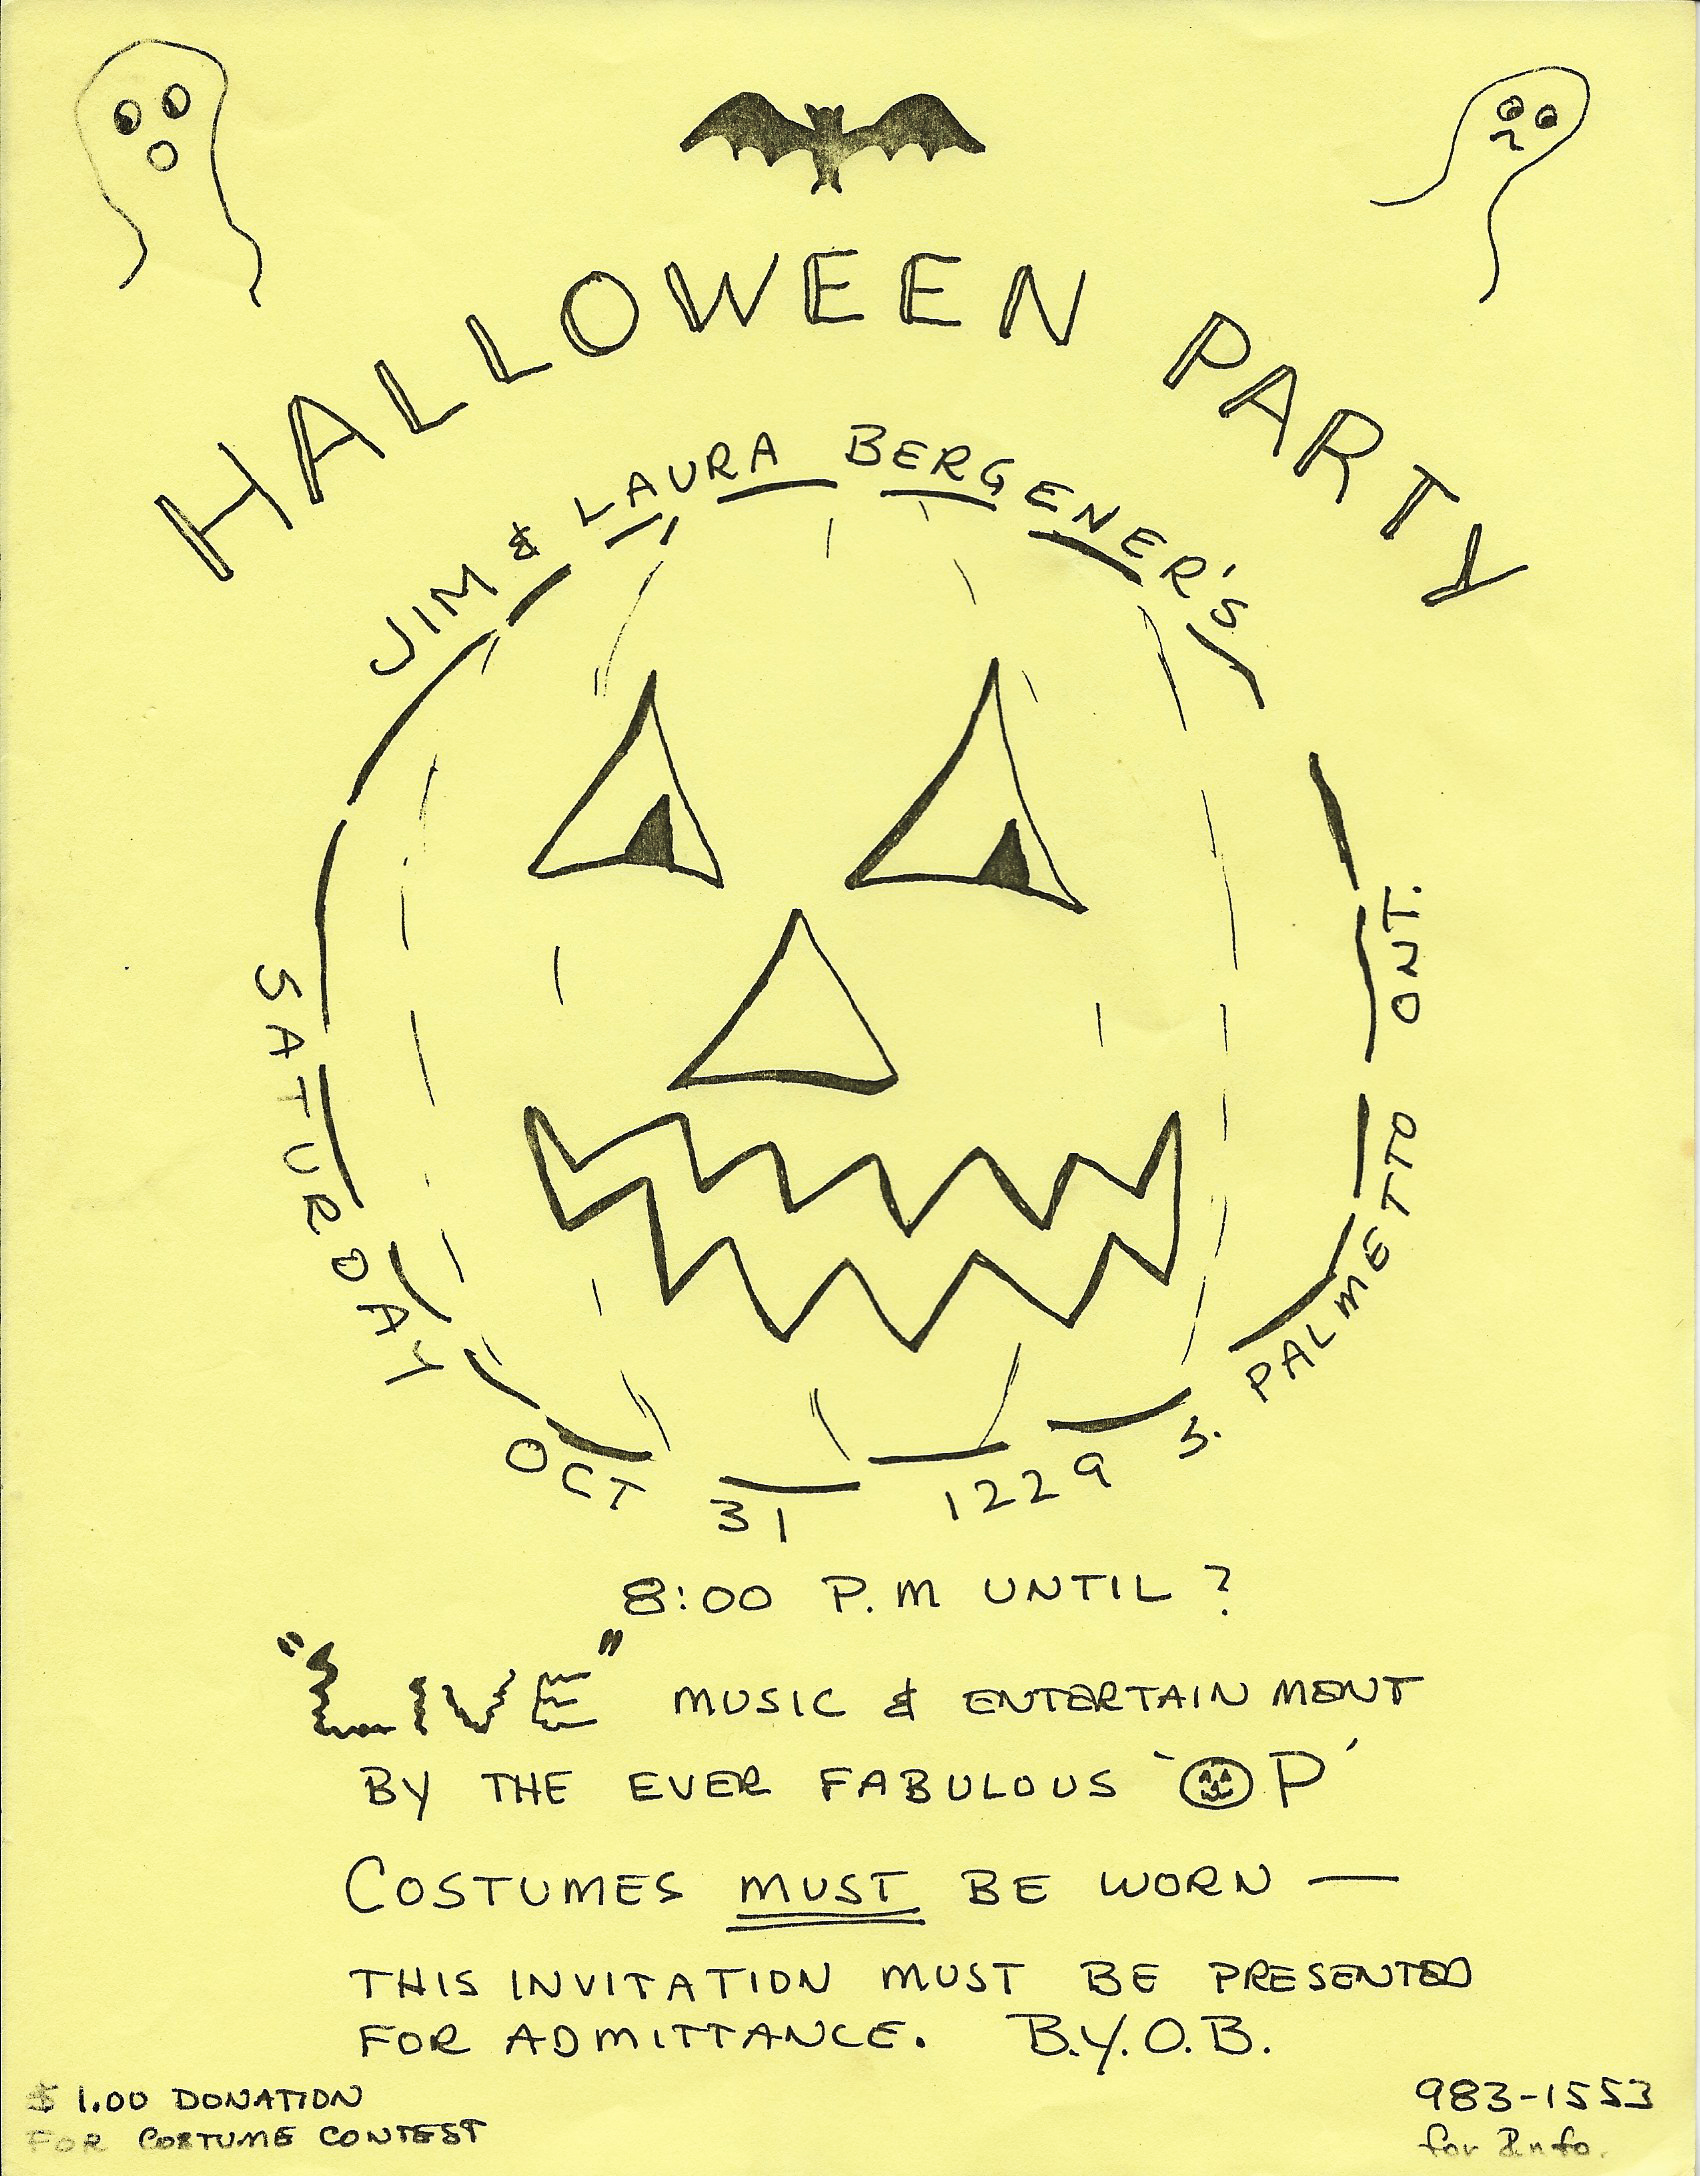 HALLOWEEN PARTY
JIM & LAURA BERGENER'S
SATURDAY OCT 31 1229 S. PALMETTO ONT.
8:00 P.M UNTIL ?
"LIVE" MUSIC & ENTERTAINMENT
BY THE EVER FABULOUS 'OP'
COSTUMES MUST BE WORN —
THIS INVITATION MUST BE PRESENTED
FOR ADMITTANCE. B.Y.O.B.
$1.00 DONATION
FOR COSTUME CONTEST
983-1553
for Info.